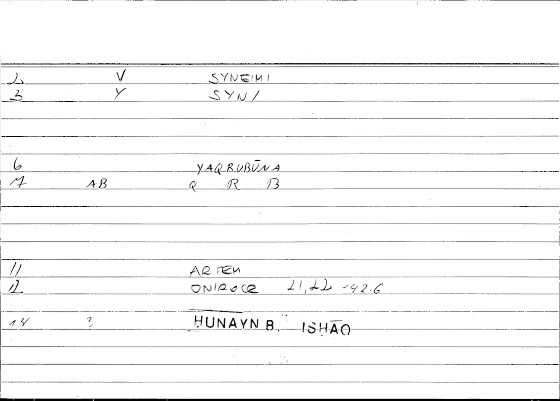 2 V SYNEIMI
3 Y SYN/
6 YAQRUBŪNA
7 AB Q R B
11 ARTEM
12 ONIROCR 21,22 -42.6
14 ? HUNAYN B. ISHĀQ